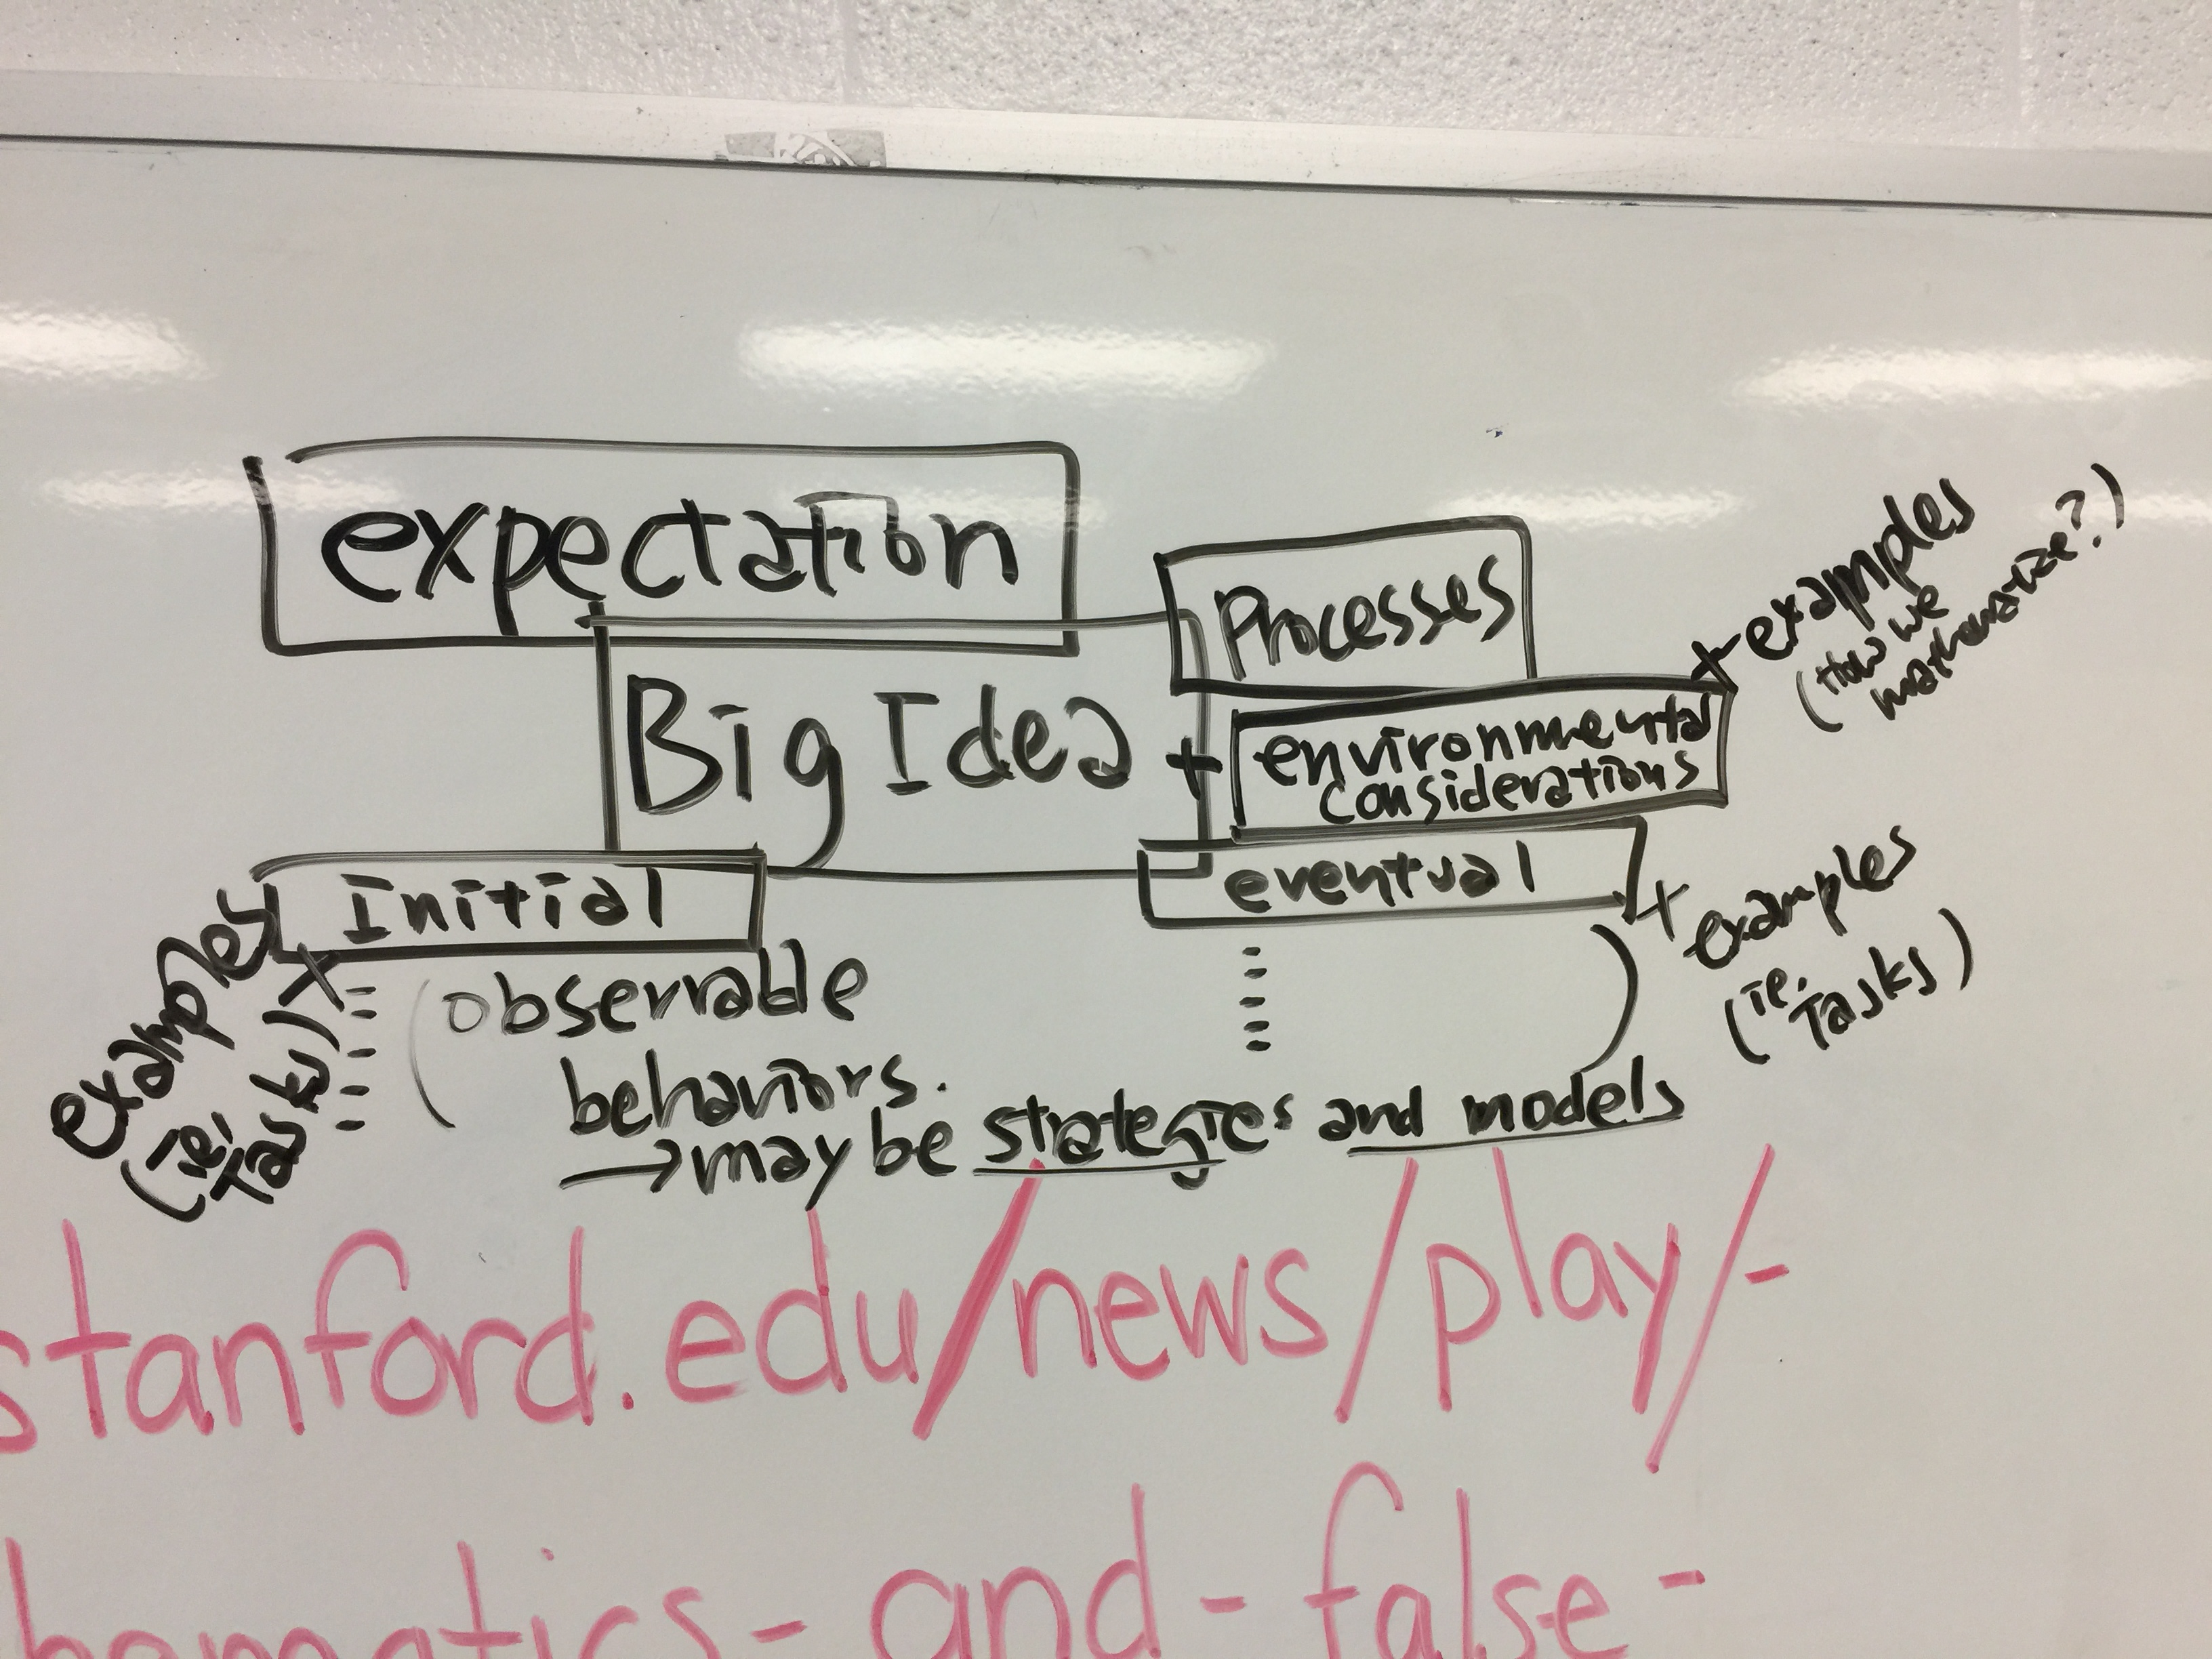 expectation
Processes
+ examples
(How we
mathematize?)
Big Idea +
environmental
considerations
Initial
eventual
+ examples
(ie.
Tasks)
examples +
(ie,
Tasks)
(observable
behaviors.
→ may be strategies and models
)
stanford.edu/news/play/-
hematics-and-false-